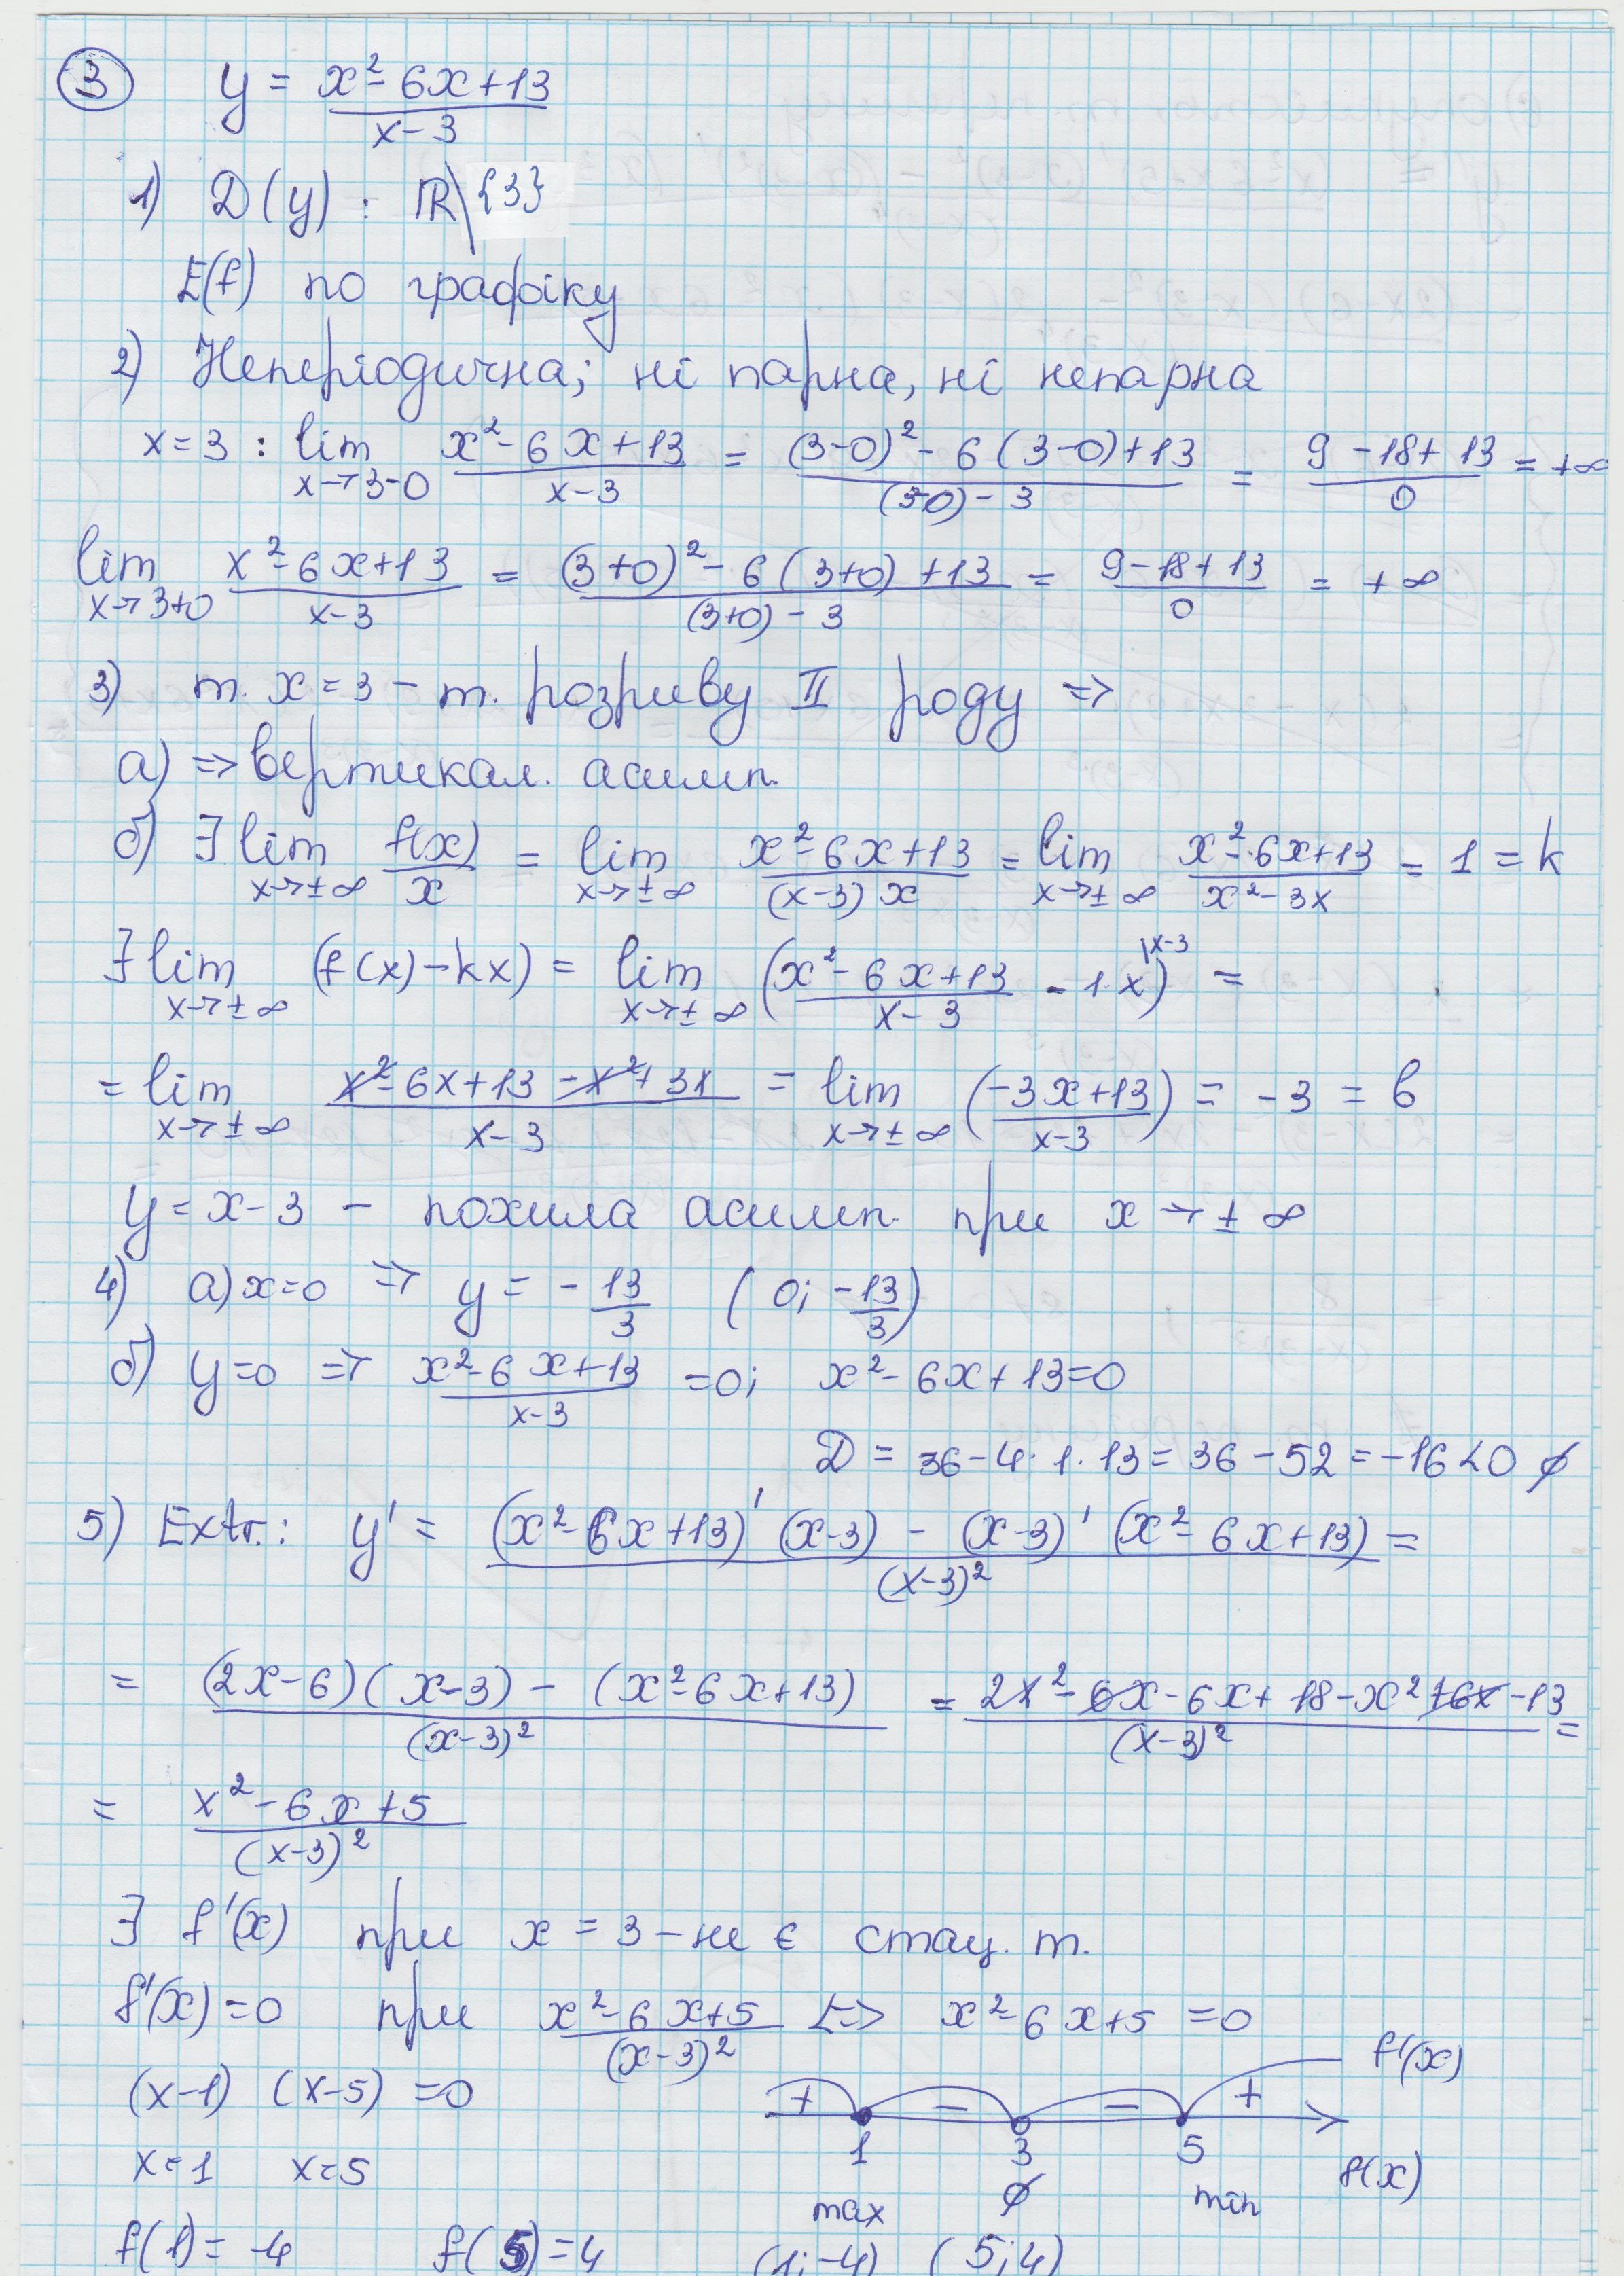 3 y = (x² - 6x + 13)/(x - 3)
1) D(y) : ℝ\{3}
E(f) по графіку
2) Неперіодична; ні парна, ні непарна
x = 3 : lim x→3-0 (x² - 6x + 13)/(x - 3) = ((3-0)² - 6(3-0) + 13)/((3-0) - 3) = (9 - 18 + 13)/0 = +∞
lim x→3+0 (x² - 6x + 13)/(x - 3) = ((3+0)² - 6(3+0) + 13)/((3+0) - 3) = (9 - 18 + 13)/0 = +∞
3) т. x = 3 - т. розриву II роду =>
а) => вертикал. асимп.
б) ∃ lim x→±∞ f(x)/x = lim x→±∞ (x² - 6x + 13)/((x-3) x) = lim x→±∞ (x² - 6x + 13)/(x² - 3x) = 1 = k
∃ lim x→±∞ (f(x) - kx) = lim x→±∞ ((x² - 6x + 13)/(x - 3) - 1·x) |x-3 =
= lim x→±∞ (x² - 6x + 13 - x² + 3x)/(x - 3) = lim x→±∞ ((-3x + 13)/(x-3)) = -3 = b
y = x - 3 - похила асимп. при x → ±∞
4) а) x = 0 => y = -13/3 (0; -13/3)
б) y = 0 => (x² - 6x + 13)/(x-3) = 0; x² - 6x + 13 = 0
D = 36 - 4·1·13 = 36 - 52 = -16 < 0 ∅
5) Extr.: y' = ((x² - 6x + 13)' (x-3) - (x-3)' (x² - 6x + 13))/(x-3)² =
= ((2x - 6)(x - 3) - (x² - 6x + 13))/(x-3)² = (2x² - 6x - 6x + 18 - x² + 6x - 13)/(x-3)² =
= (x² - 6x + 5)/(x-3)²
∃ f'(x) при x = 3 - не є стац. т.
f'(x) = 0 при (x² - 6x + 5)/(x-3)² <=> x² - 6x + 5 = 0
(x-1) (x-5) = 0
+ - - + f'(x)
1 3 5
x = 1 x = 5
f(x)
max ∅ min
f(1) = -4 f(5) = 4 (1; -4) (5; 4)